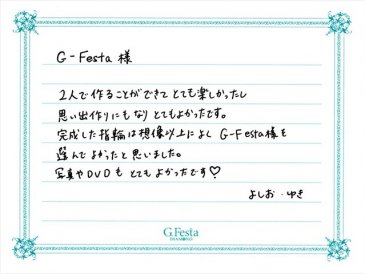 G-Festa 様
2人で作ることができてとても楽しかったし
思い出作りにもなりとてもよかったです。
完成した指輪は想像以上によく G-Festa様を
選んでよかったと思いました。
写真やDVDも とてもよかったです♡
よしお・ゆき
G.Festa
DIAMOND